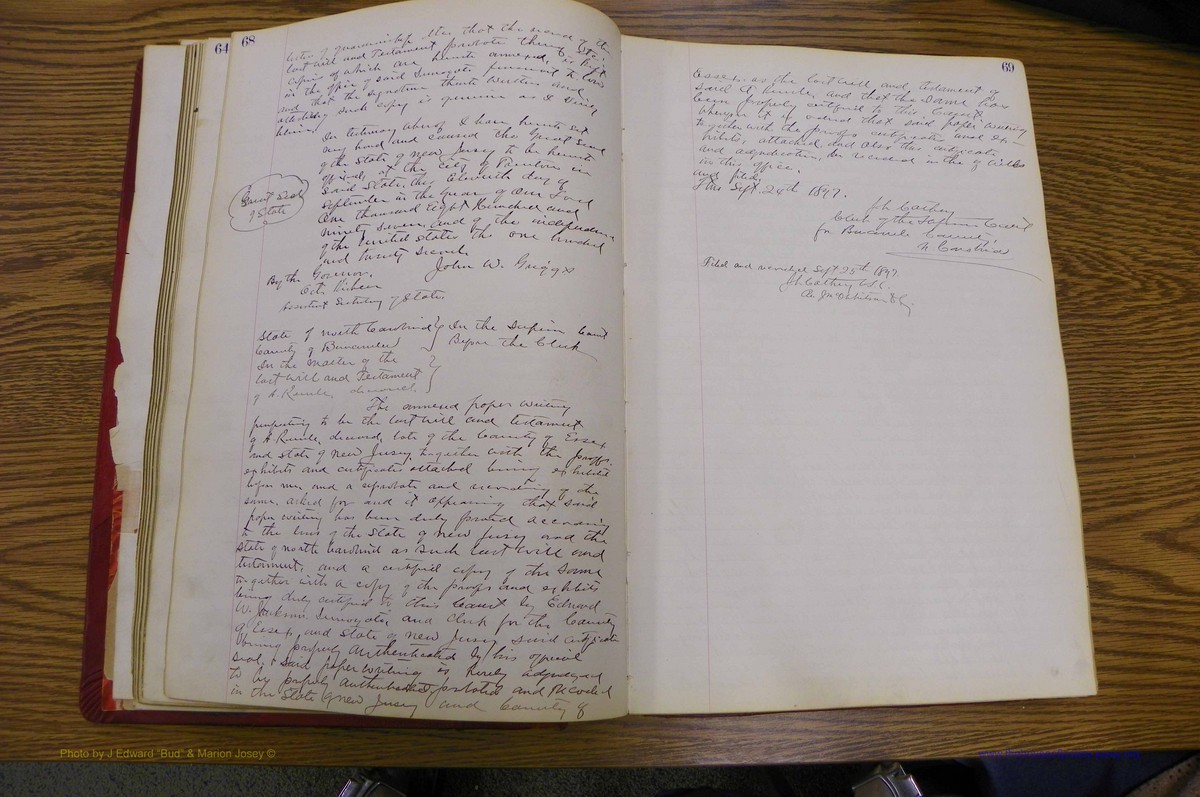 64
68
letters of guardianship. that the record of the
last will and Testament probate thereof etc.
copies of which are hereto annexed, is kept
in the office of said Surrogate pursuant to law
and that the signature thereto written and
attesting such copy is genuine as I verily
believe.
In testimony whereof I have hereto set
my hand and caused the Great Seal
of the State of New Jersey to be hereto
affixed, at the City of Trenton in
Said State, this Eleventh day of
September in the year of Our Lord
One thousand Eight Hundred and
ninety seven and of the independence
of the United States the one hundred
and twenty second.
Great Seal
of State
By the Governor, John W. Griggs
Assistant Secretary of State
State of North Carolina } In the Superior Court
County of Buncombe } Before the Clerk
In the matter of the
last will and Testament
of A deceased.
The annexed paper writing
purporting to be the last will and testament
of A deceased, late of the County of Essex
and State of New Jersey, together with the proofs
exhibits and certificates attached being exhibited
before me and a probate and recording of the
same asked for and it appearing that said
paper writing has been duly proved according
to the laws of the State of New Jersey and the
State of North Carolina as such last will and
testament, and a certified copy of the same
together with a copy of the proofs and exhibits
being duly certified to this Court by Edward
W. Jackson Surrogate and Clerk for the County
of Essex, and State of New Jersey said certificate
being properly authenticated by his official
seal. Said paper writing is hereby adjudged
to be properly authenticated, probated and Recorded
in the State of New Jersey and County of
69
Essex, as the last will and testament of
said A and that the same has
been properly certified to this Court
whereupon it is ordered that said paper writing
together with the proofs certificate and ex-
hibits, attached and also this certificate
and adjudication, be recorded in the of Wills
in this office.
and filed.
This Sept. 24th 1897.
J. L. Cathey
Clerk of the Superior Court
for Buncombe County
N Carolina
Filed and recorded Sept 25th 1897.
J. L. Cathey C.S.C.
Photo by J Edward "Bud" & Marion Josey ©